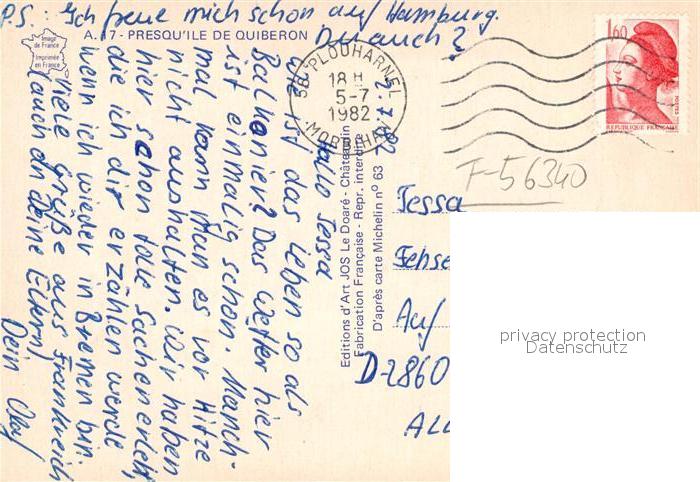 P.S.: Ich freue mich schon auf Hamburg.
Du auch?
A. 17 - PRESQU'ILE DE QUIBERON
Image
de France
Imprimée
en France
56 PLOUHARNEL
18 H
5-7
1982
MORBIHAN
1,60
POSTES
REPUBLIQUE FRANÇAISE
F-56340
5.7.82
Hallo Tessa
wie ist das Leben so als
Balkonier? Das Wetter hier
ist einmalig schön. Manch-
mal kann man es vor Hitze
nicht aushalten. Wir haben
hier schon tolle Sachen erlebt,
die ich dir erzählen werde
wenn ich wieder in Bremen bin.
Viele Grüße aus Frankreich
(auch an deine Eltern)
Dein Olaf
Editions d'Art JOS Le Doaré - Châteaulin
Fabrication Française - Repr. interdite
D'après carte Michelin n° 63
Tessa
Fehse
Auf
D-2860
ALL
privacy protection
Datenschutz